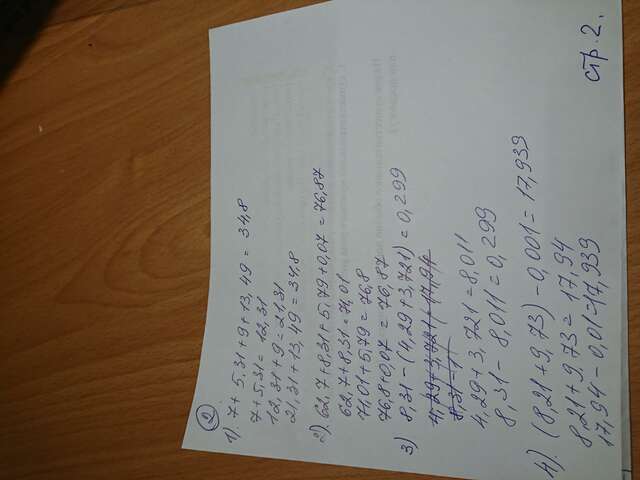 2
1) 7 + 5,31 + 9 + 13,49 = 34,8
7 + 5,31 = 12,31
12,31 + 9 = 21,31
21,31 + 13,49 = 34,8
2) 62,7 + 8,31 + 5,79 + 0,07 = 76,87
62,7 + 8,31 = 71,01
71,01 + 5,79 = 76,8
76,8 + 0,07 = 76,87
3) 8,31 - (4,29 + 3,721) = 0,299
4,29 + 3,721 = 8,011
8,31 - 8,011 = 0,299
4). (8,21 + 9,73) - 0,001 = 17,939
8,21 + 9,73 = 17,94
17,94 - 0,01 = 17,939
стр. 2.